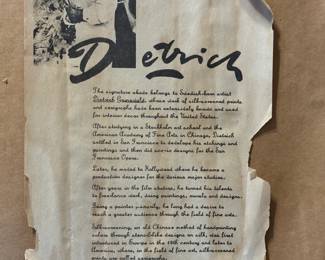 Dietrich
The signature above belongs to Swedish-born artist
Dietrich Grunewald, whose work of silkscreened prints
and serigraphs have been extensively bought and used
for interior decor throughout the United States.
After studying in a Stockholm art school and the
American Academy of Fine Arts in Chicago, Dietrich
settled in San Francisco to develop his etchings and
paintings and then did scenic designs for the San
Francisco Opera.
Later, he moved to Hollywood where he became a
production designer for the various major studios.
After years in the film studios, he turned his talents
to freelance work, doing paintings, murals and designs.
Being a painter primarily, he long had a desire to
reach a greater audience through the field of fine arts.
Silkscreening, an old Chinese method of handpainting
colors through stencil-like designs on silk, was first
introduced in Europe in the 18th century and later to
America, where, in the field of fine art, silkscreened
prints are called serigraphs.